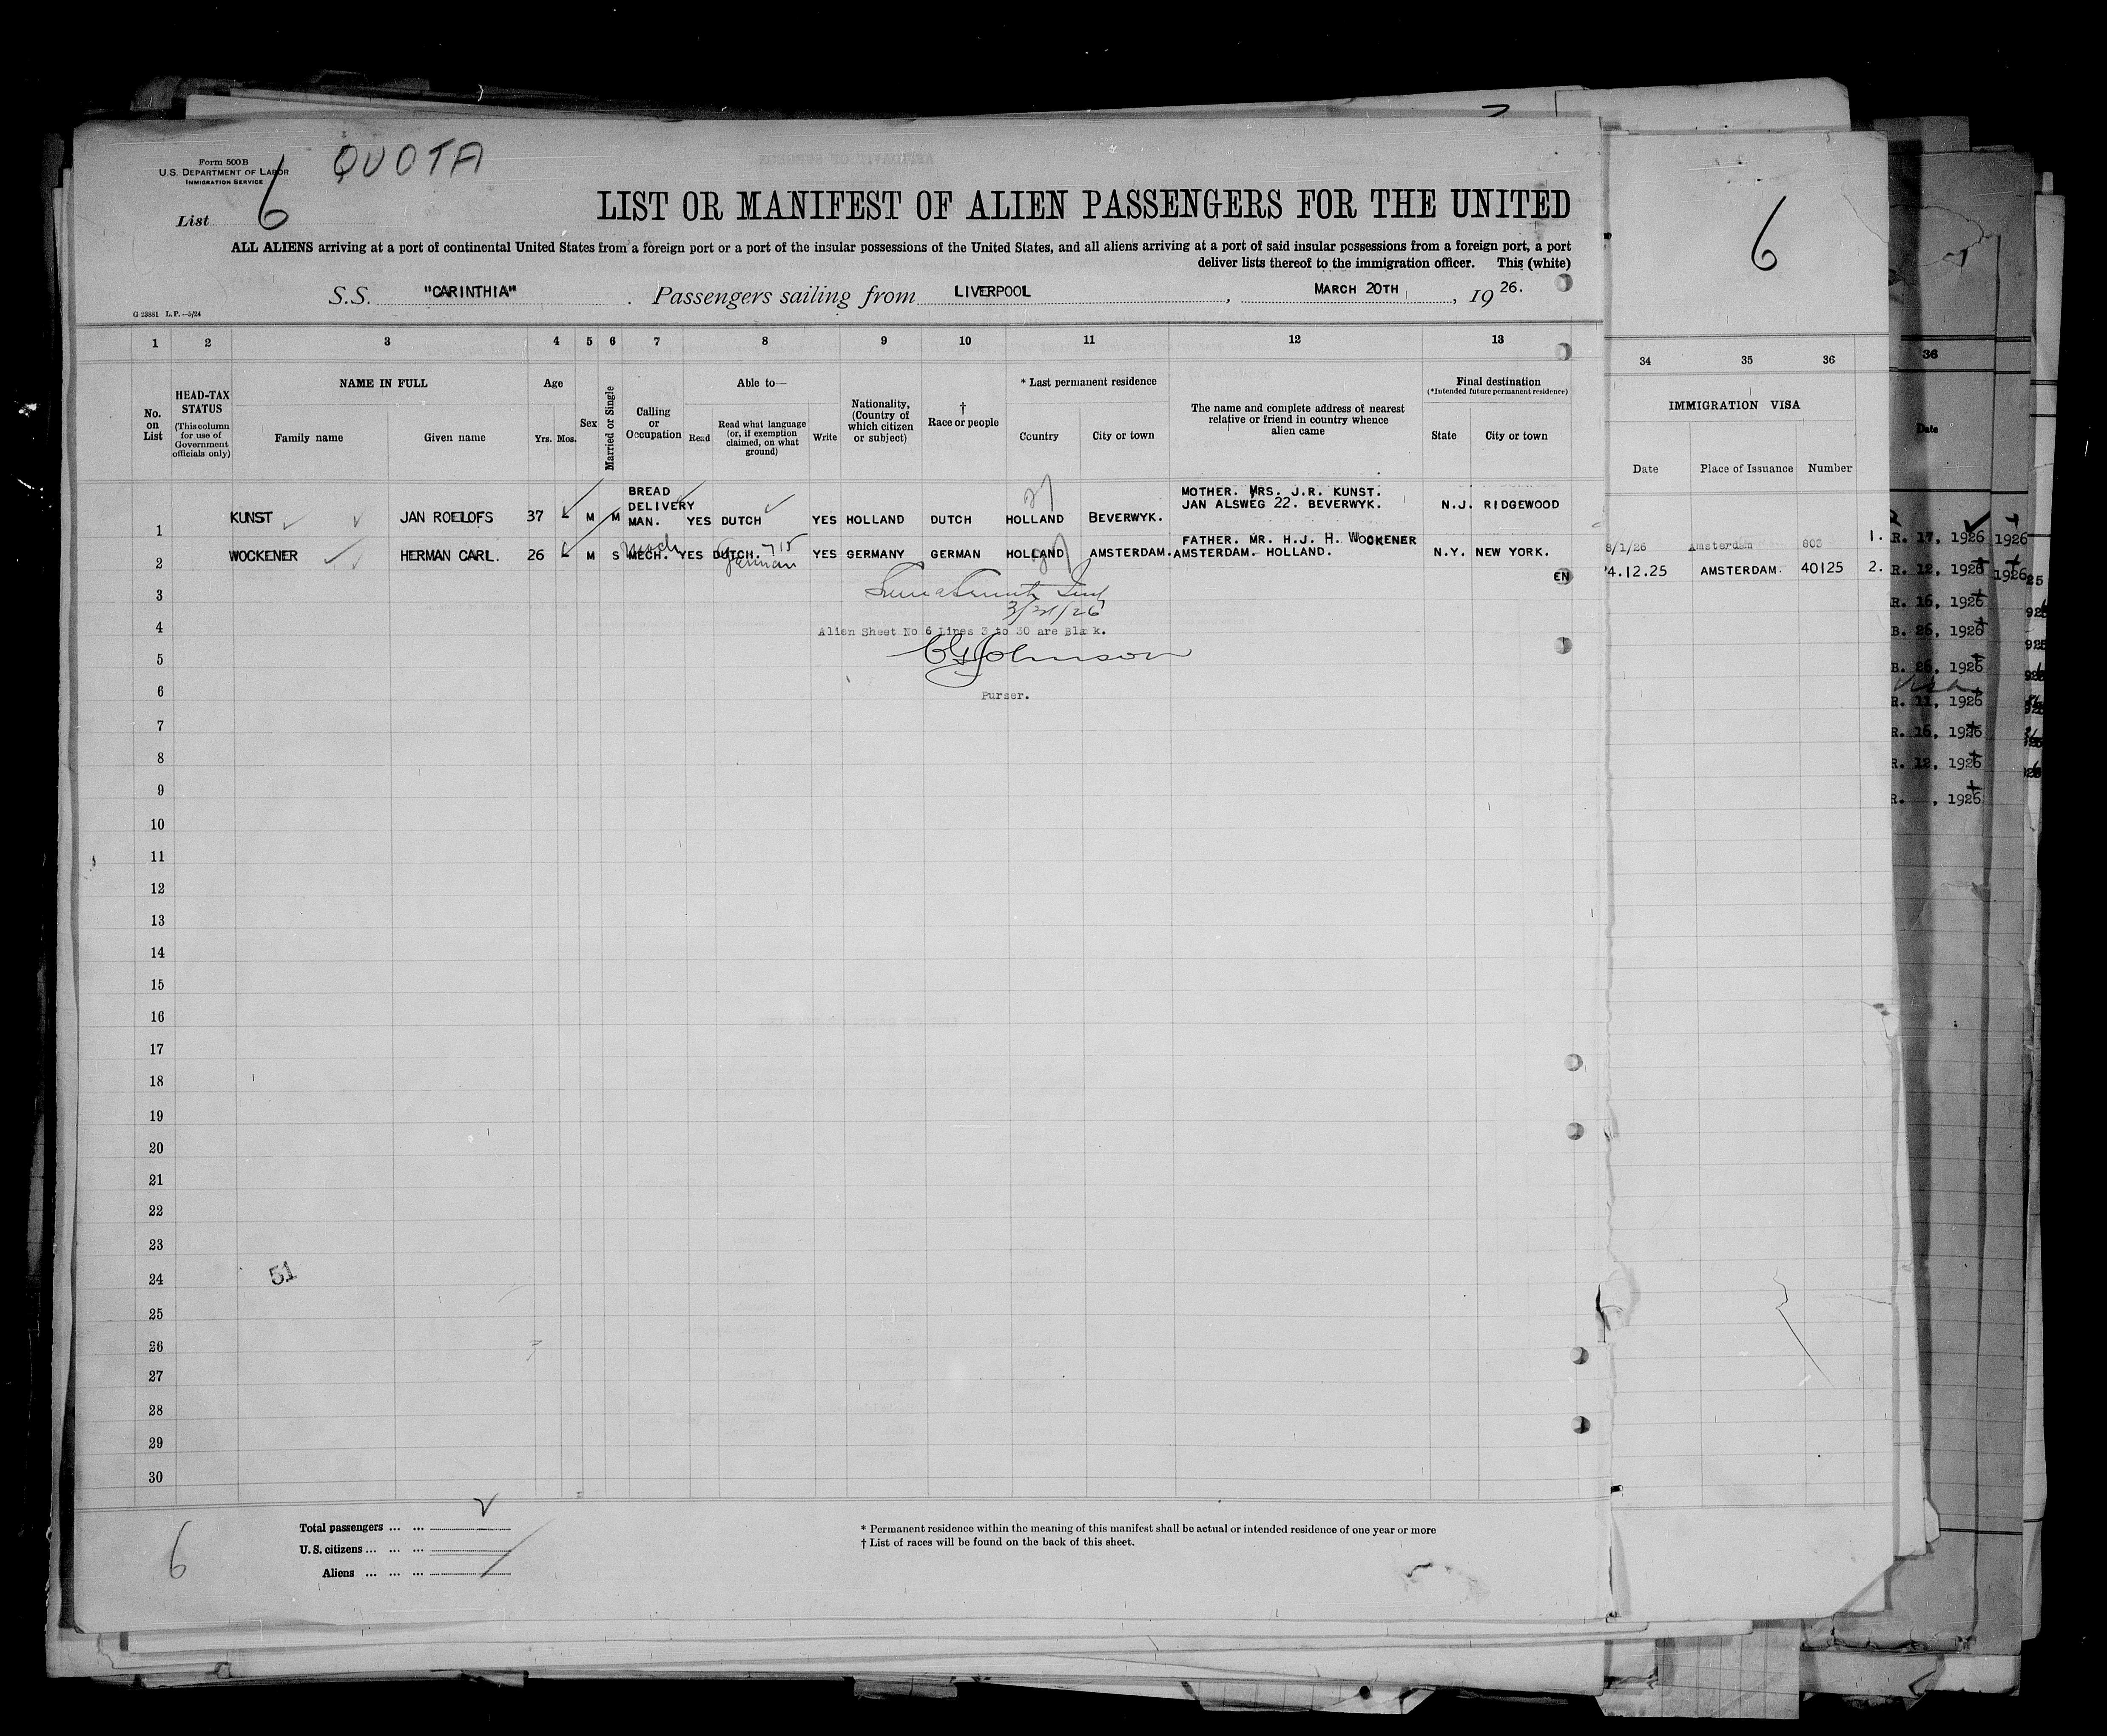 Form 500B
U.S. DEPARTMENT OF LABOR
IMMIGRATION SERVICE
QUOTA
List 6
LIST OR MANIFEST OF ALIEN PASSENGERS FOR THE UNITED
ALL ALIENS arriving at a port of continental United States from a foreign port or a port of the insular possessions of the United States, and all aliens arriving at a port of said insular possessions from a foreign port, a port
deliver lists thereof to the immigration officer. This (white)
S.S. "CARINTHIA" . Passengers sailing from LIVERPOOL , MARCH 20TH , 19 26.
G 23881 L.P.-5/24
1 2 3 4 5 6 7 8 9 10 11 12 13
No. on List
HEAD-TAX STATUS
(This column for use of Government officials only)
NAME IN FULL
Family name Given name
Age
Yrs. Mos.
Sex
Married or Single
Calling or Occupation
Able to—
Read
Read what language (or, if exemption claimed, on what ground)
Write
Nationality, (Country of which citizen or subject)
†
Race or people
* Last permanent residence
Country City or town
The name and complete address of nearest relative or friend in country whence alien came
Final destination
(*Intended future permanent residence)
State City or town
1 KUNST JAN ROELOFS 37 M M BREAD DELIVERY MAN. YES DUTCH YES HOLLAND DUTCH HOLLAND BEVERWYK. MOTHER. MRS. J.R. KUNST. JAN ALSWEG 22. BEVERWYK. N.J. RIDGEWOOD
2 WOCKENER HERMAN CARL. 26 M S MECH. YES DUTCH. German YES GERMANY GERMAN HOLLAND AMSTERDAM. FATHER. MR. H.J. H. WOCKENER AMSTERDAM.- HOLLAND. N.Y. NEW YORK.
EN
3
4
3/21/26
Alien Sheet No 6 Lines 3 to 30 are Blank.
5
CG Johnson
6
Purser.
7
8
9
10
11
12
13
14
15
16
17
18
19
20
21
22
23
24
51
25
26
27
28
29
30
6
Total passengers ... ...
U.S. citizens ... ... ...
Aliens ... ... ...
* Permanent residence within the meaning of this manifest shall be actual or intended residence of one year or more
† List of races will be found on the back of this sheet.
6
34 35 36
IMMIGRATION VISA
Date Place of Issuance Number
8/1/26 Amsterdam 803 1.
4.12.25 AMSTERDAM. 40125 2.
36
Date
R. 17, 1926 1926
R. 12, 1926 1926
R. 16, 1926
B. 26, 1926
B. 26, 1926
R. 11, 1926
R. 16, 1926
R. 12, 1926
R. , 1926